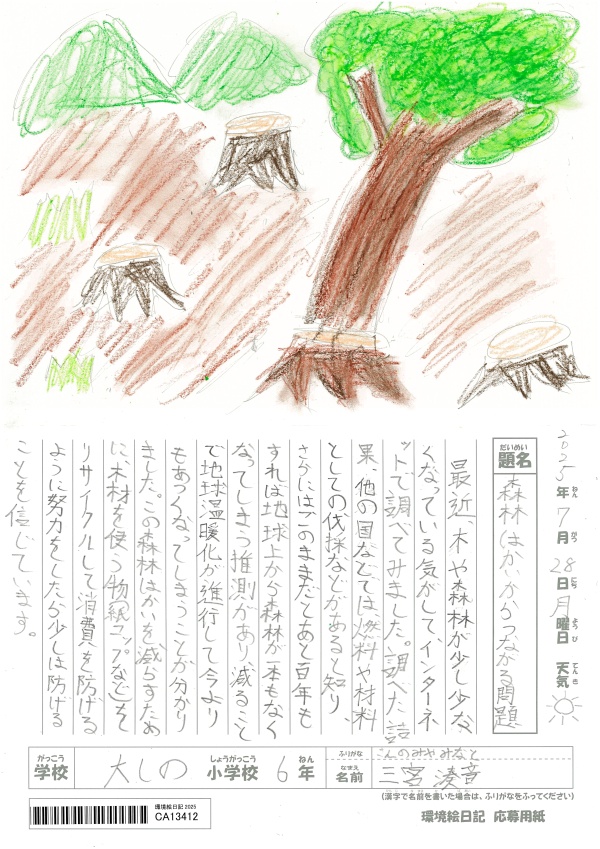 2025年7月28日月曜日 天気
ねん がつ にち ようび てんき
だいめい
題名 森林はかいからつながる問題
最近、木や森林が少し少な
くなっている気がして、インターネ
ットで調べてみました。調べた結
果、他の国などでは燃料や材料
としての伐採などがあると知り、
さらにはこのままだとあと百年も
すれば地球上から森林が一本もなく
なってしまう推測があり、減ること
で地球温暖化が進行して今より
もあつくなってしまうことが分かり
ました。この森林はかいを減らすため
に、木材を使う物(紙コップなど)を
リサイクルして消費を防げる
ように努力をしたら少しは防げる
ことを信じています。
がっこう しょうがっこう ねん ふりがな さんのみやみなと
学校 大しの 小学校 6年 なまえ 名前 三宮 湊音
(漢字で名前を書いた場合は、ふりがなをふってください)
環境絵日記 2025
CA13412
環境絵日記 応募用紙